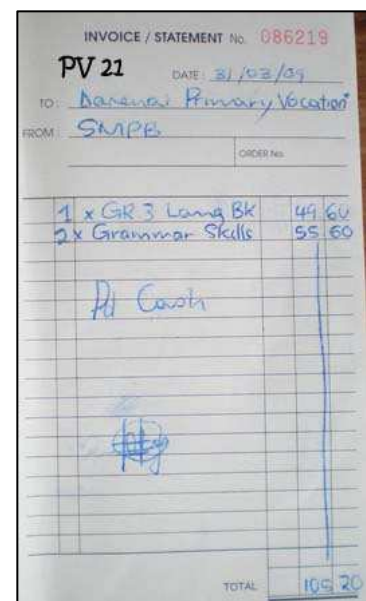 INVOICE / STATEMENT No. 086219
PV 21 DATE: 31/03/09
TO: Primary Vocation
FROM: SMPB
ORDER No.
1 x GR 3 Lang Bk 49 60
2 x Grammar Skills 55 60
Pd Cash
TOTAL 105 20